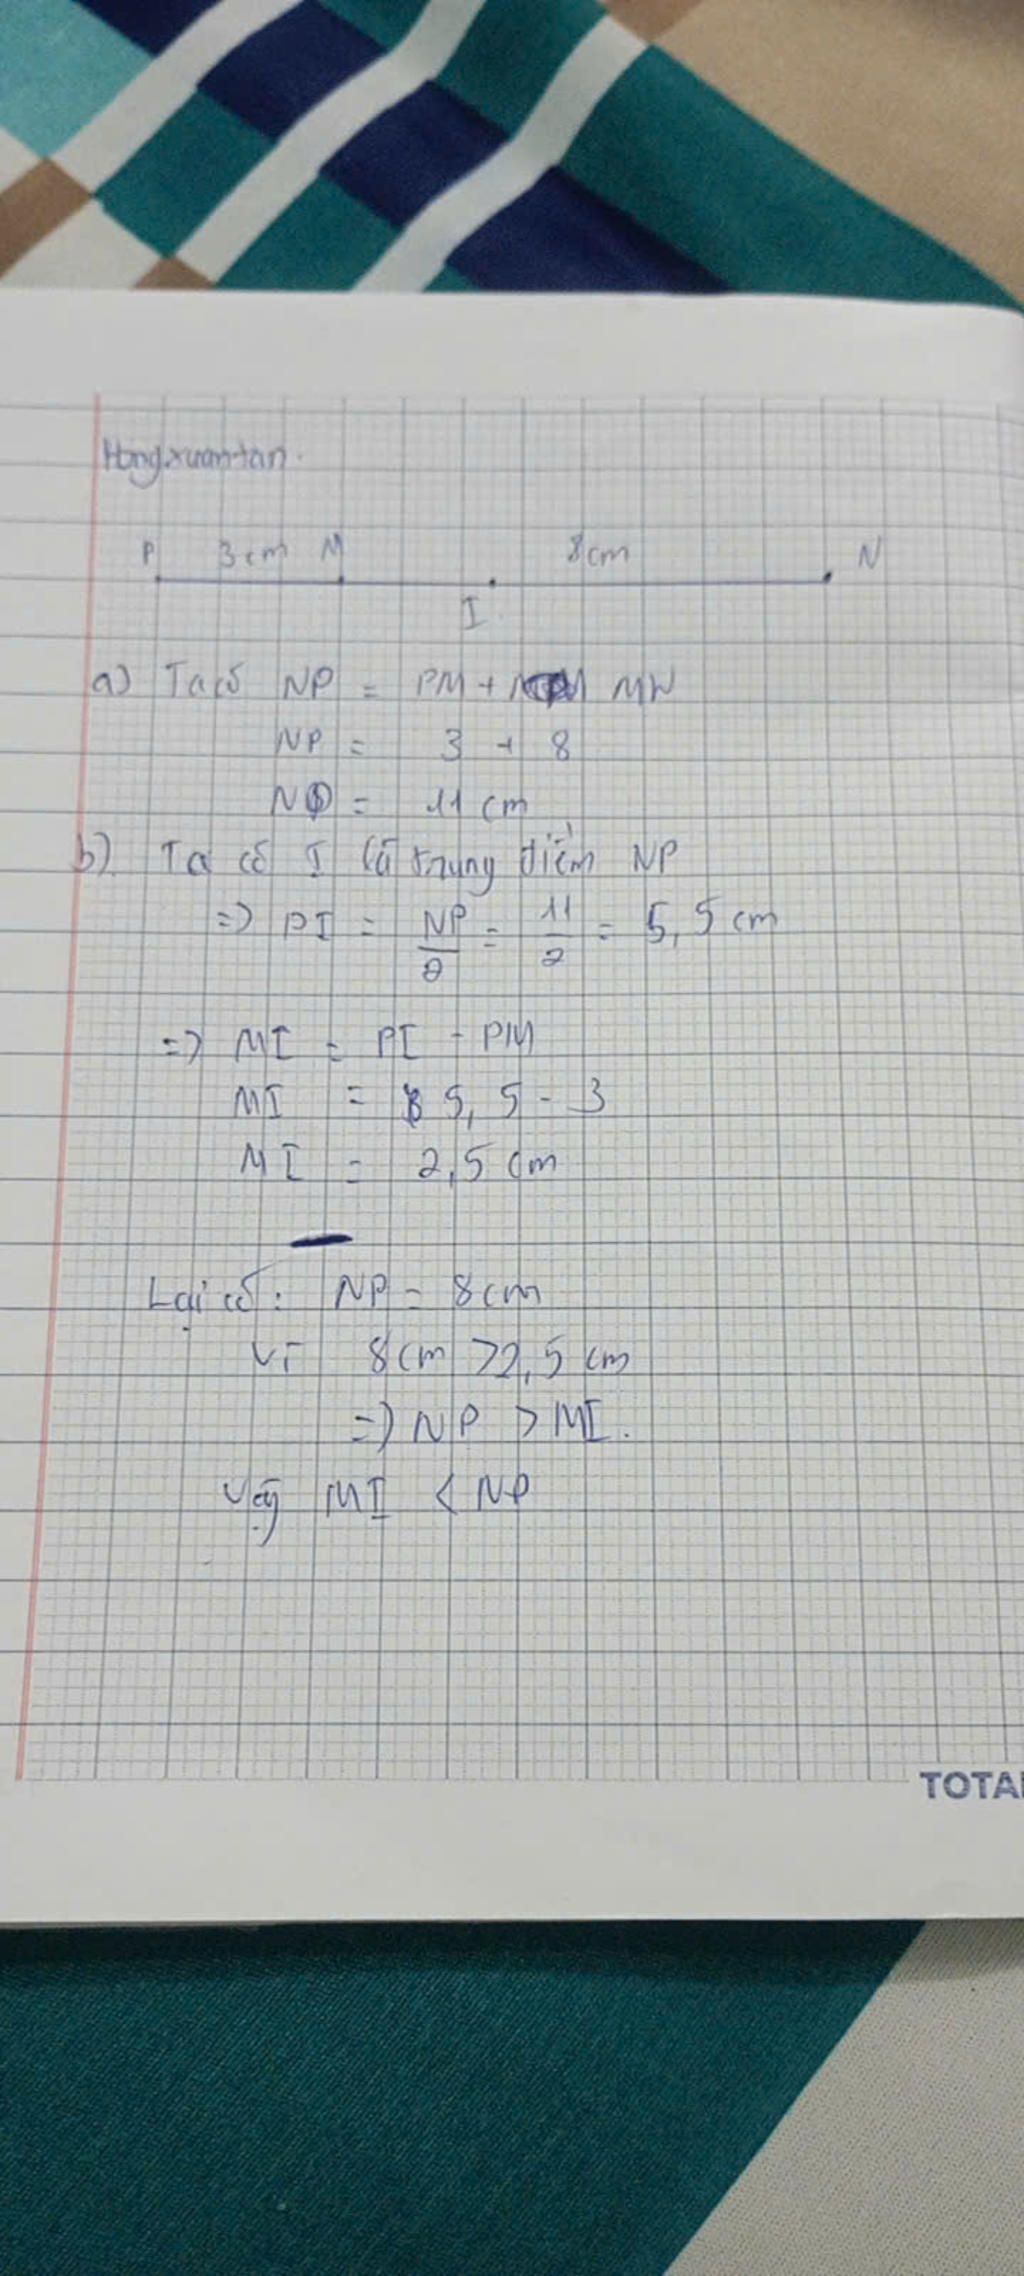 Hongxuantan.
P 3cm M 8cm N
I
a) Ta có NP = PM + MN
NP = 3 + 8
NP = 11 cm
b) Ta có I là trung điểm NP
=> PI = NP/2 = 11/2 = 5,5 cm
=> MI = PI - PM
MI = 5,5 - 3
MI = 2,5 cm
Lại có: NP = 8cm
Vì 8cm > 2,5 cm
=> NP > MI.
Vậy MI < NP
TOTAL